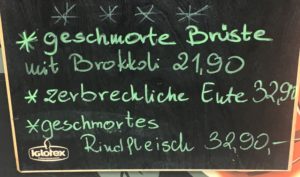 * * * *
* geschmorte Brüste
mit Brokkoli 21,90
* zerbrechliche Ente 32,90
* geschmortes
Rindfleisch 32,90,-
iglotex